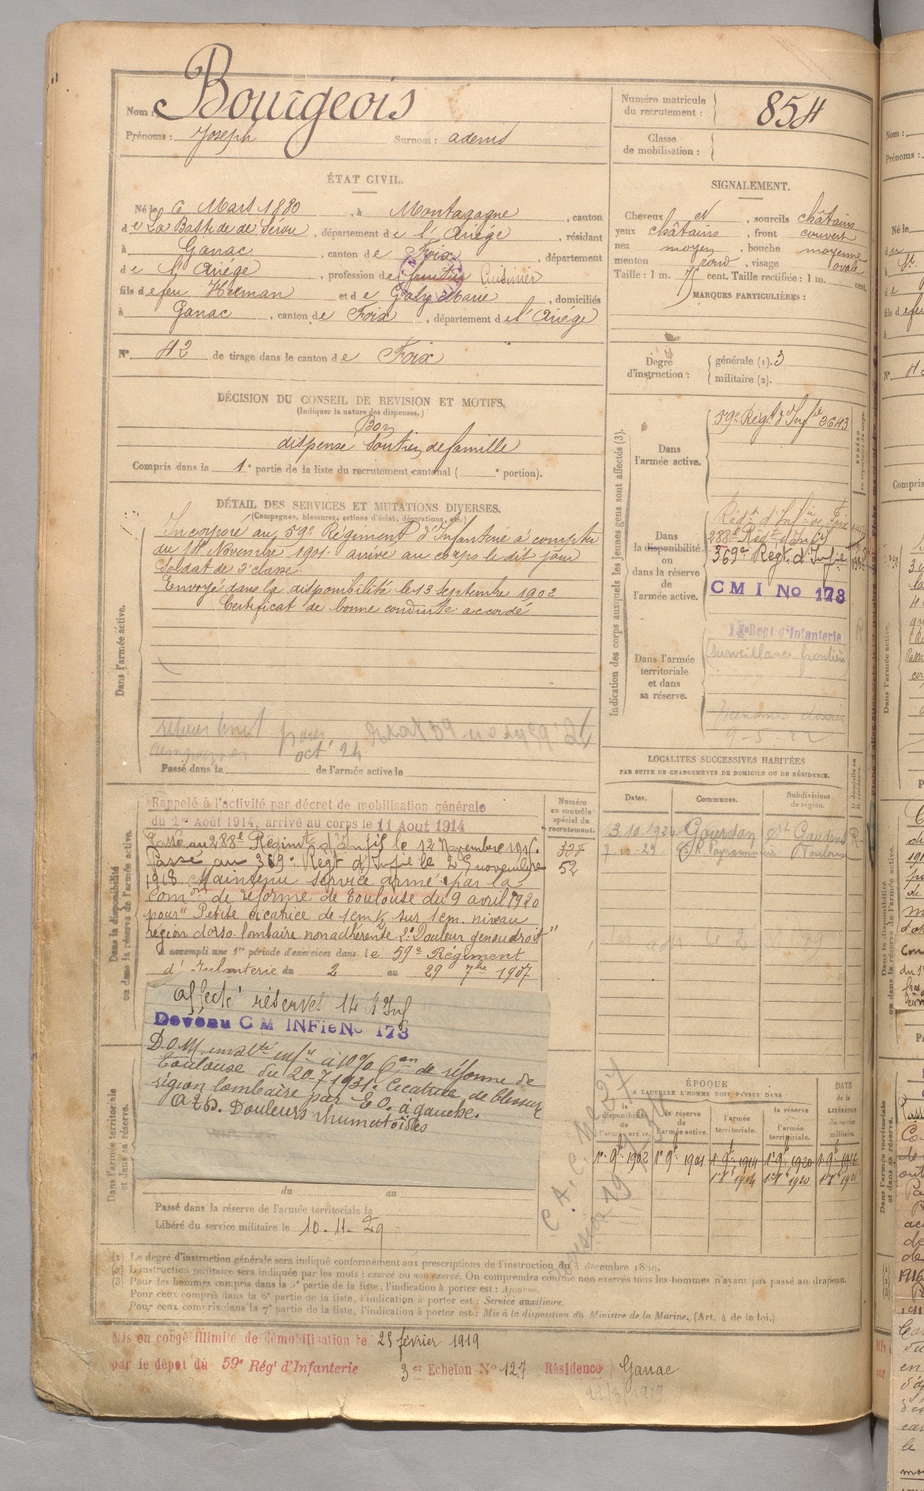 Nom : Bourgeois
Prénoms : Joseph Surnom :
Numéro matricule du recrutement : 854
Classe de mobilisation :
ÉTAT CIVIL.
Né le 6 Mars 1880, à Montagagne, canton
de La Bastide de Sérou, département de l'Ariège, résidant
à Ganac, canton de Foix, département
de l'Ariège, profession de Cuisinier
fils de feu Herman et de Galy Marie, domiciliés
à Ganac, canton de Foix, département de l'Ariège
N° 42 de tirage dans le canton de Foix
SIGNALEMENT.
Cheveux N, sourcils châtains
yeux châtains, front couvert
nez moyen, bouche moyenne
menton rond, visage ovale
Taille : 1 m. cent. Taille rectifiée : 1 m. cent.
MARQUES PARTICULIÈRES :
Degré d'instruction : générale (1). 3
militaire (2).
DÉCISION DU CONSEIL DE REVISION ET MOTIFS.
(Indiquer la nature des dispenses.)
Bon
dispensé Soutien de famille
Compris dans la 1e partie de la liste du recrutement cantonal ( e portion).
DÉTAIL DES SERVICES ET MUTATIONS DIVERSES.
(Campagnes, blessures, actions d'éclat, décorations, etc.)
Dans l'armée active.
Incorporé au 59e Régiment d'Infanterie à compter
du 14 Novembre 1901 arrivé au corps le dit jour
Soldat de 2e classe.
Envoyé dans la disponibilité le 13 Septembre 1902
Certificat de bonne conduite accordé
oct 24
Passé dans la de l'armée active le
Indication des corps auxquels les jeunes gens sont affectés (3).
Dans l'armée active.
59e Régt d'Infie 3643
Dans la disponibilité ou dans la réserve de l'armée active.
288e Régt d'Inf
369e Régt d'Infie
C M I No 173
Dans l'armée territoriale et dans sa réserve.
Régt d'Infanterie
Surveillance frontière
Dans la disponibilité ou dans la réserve de l'armée active.
Rappelé à l'activité par décret de mobilisation générale
du 1er Août 1914, arrivé au corps le 11 Août 1914
Passé au 288e Régiment d'Infie le 12 Novembre
Passé au 369e Régt d'Infie le 25 novembre
1918 Maintenu service armé par la
Comon de réforme de Toulouse du 9 avril 1920
pour "Petite cicatrice de 1cm ½ sur 1cm niveau
région dorso lombaire non adhérente 2° Douleur genou droit"
A accompli une 1re période d'exercices dans le 59e Régiment
d'Infanterie du 2 au 29 7bre 1907
Numéro au contrôle spécial du recrutement.
52
affecté réserves 14 I Inf
Devenu C M INFie No 173
Toulouse du 20-7-1931. Cicatrice de blessure
région lombaire par E.O. à gauche.
Douleurs rhumatoïdes
Dans l'armée territoriale et dans sa réserve.
du au
Passé dans la réserve de l'armée territoriale le
Libéré du service militaire le 10-11-29
LOCALITES SUCCESSIVES HABITÉES
PAR SUITE DE CHANGEMENTS DE DOMICILE OU DE RÉSIDENCE.
Dates. Communes. Subdivisions de région.
3.10.1924 Gourdan St Gaudens R
7-10-29 Toulouse
ÉPOQUE
A LAQUELLE L'HOMME DOIT PASSER DANS
la disponibilité de l'armée active. la réserve de l'armée active. l'armée territoriale. la réserve de l'armée territoriale.
DATE de la LIBÉRATION du service militaire.
1er 9bre 1902 1er 9bre 1904
(1) Le degré d'instruction générale sera indiqué conformément aux prescriptions de l'instruction du 5 décembre 1889.
(2) L'instruction militaire sera indiquée par les mots : exercé ou non exercé. On comprendra comme non exercés tous les hommes n'ayant pas passé au drapeau.
(3) Pour les hommes compris dans la 5e partie de la liste, l'indication à porter est : Ajourné.
Pour ceux compris dans la 6e partie de la liste, l'indication à porter est : Service auxiliaire.
Pour ceux compris dans la 7e partie de la liste, l'indication à porter est : Mis à la disposition du Ministre de la Marine. (Art. 4 de la loi.)
Mis en congé illimité de démobilisation le 25 février 1919
par le dépôt du 59e Régt d'Infanterie 3e Echelon No 127 Résidence Ganac